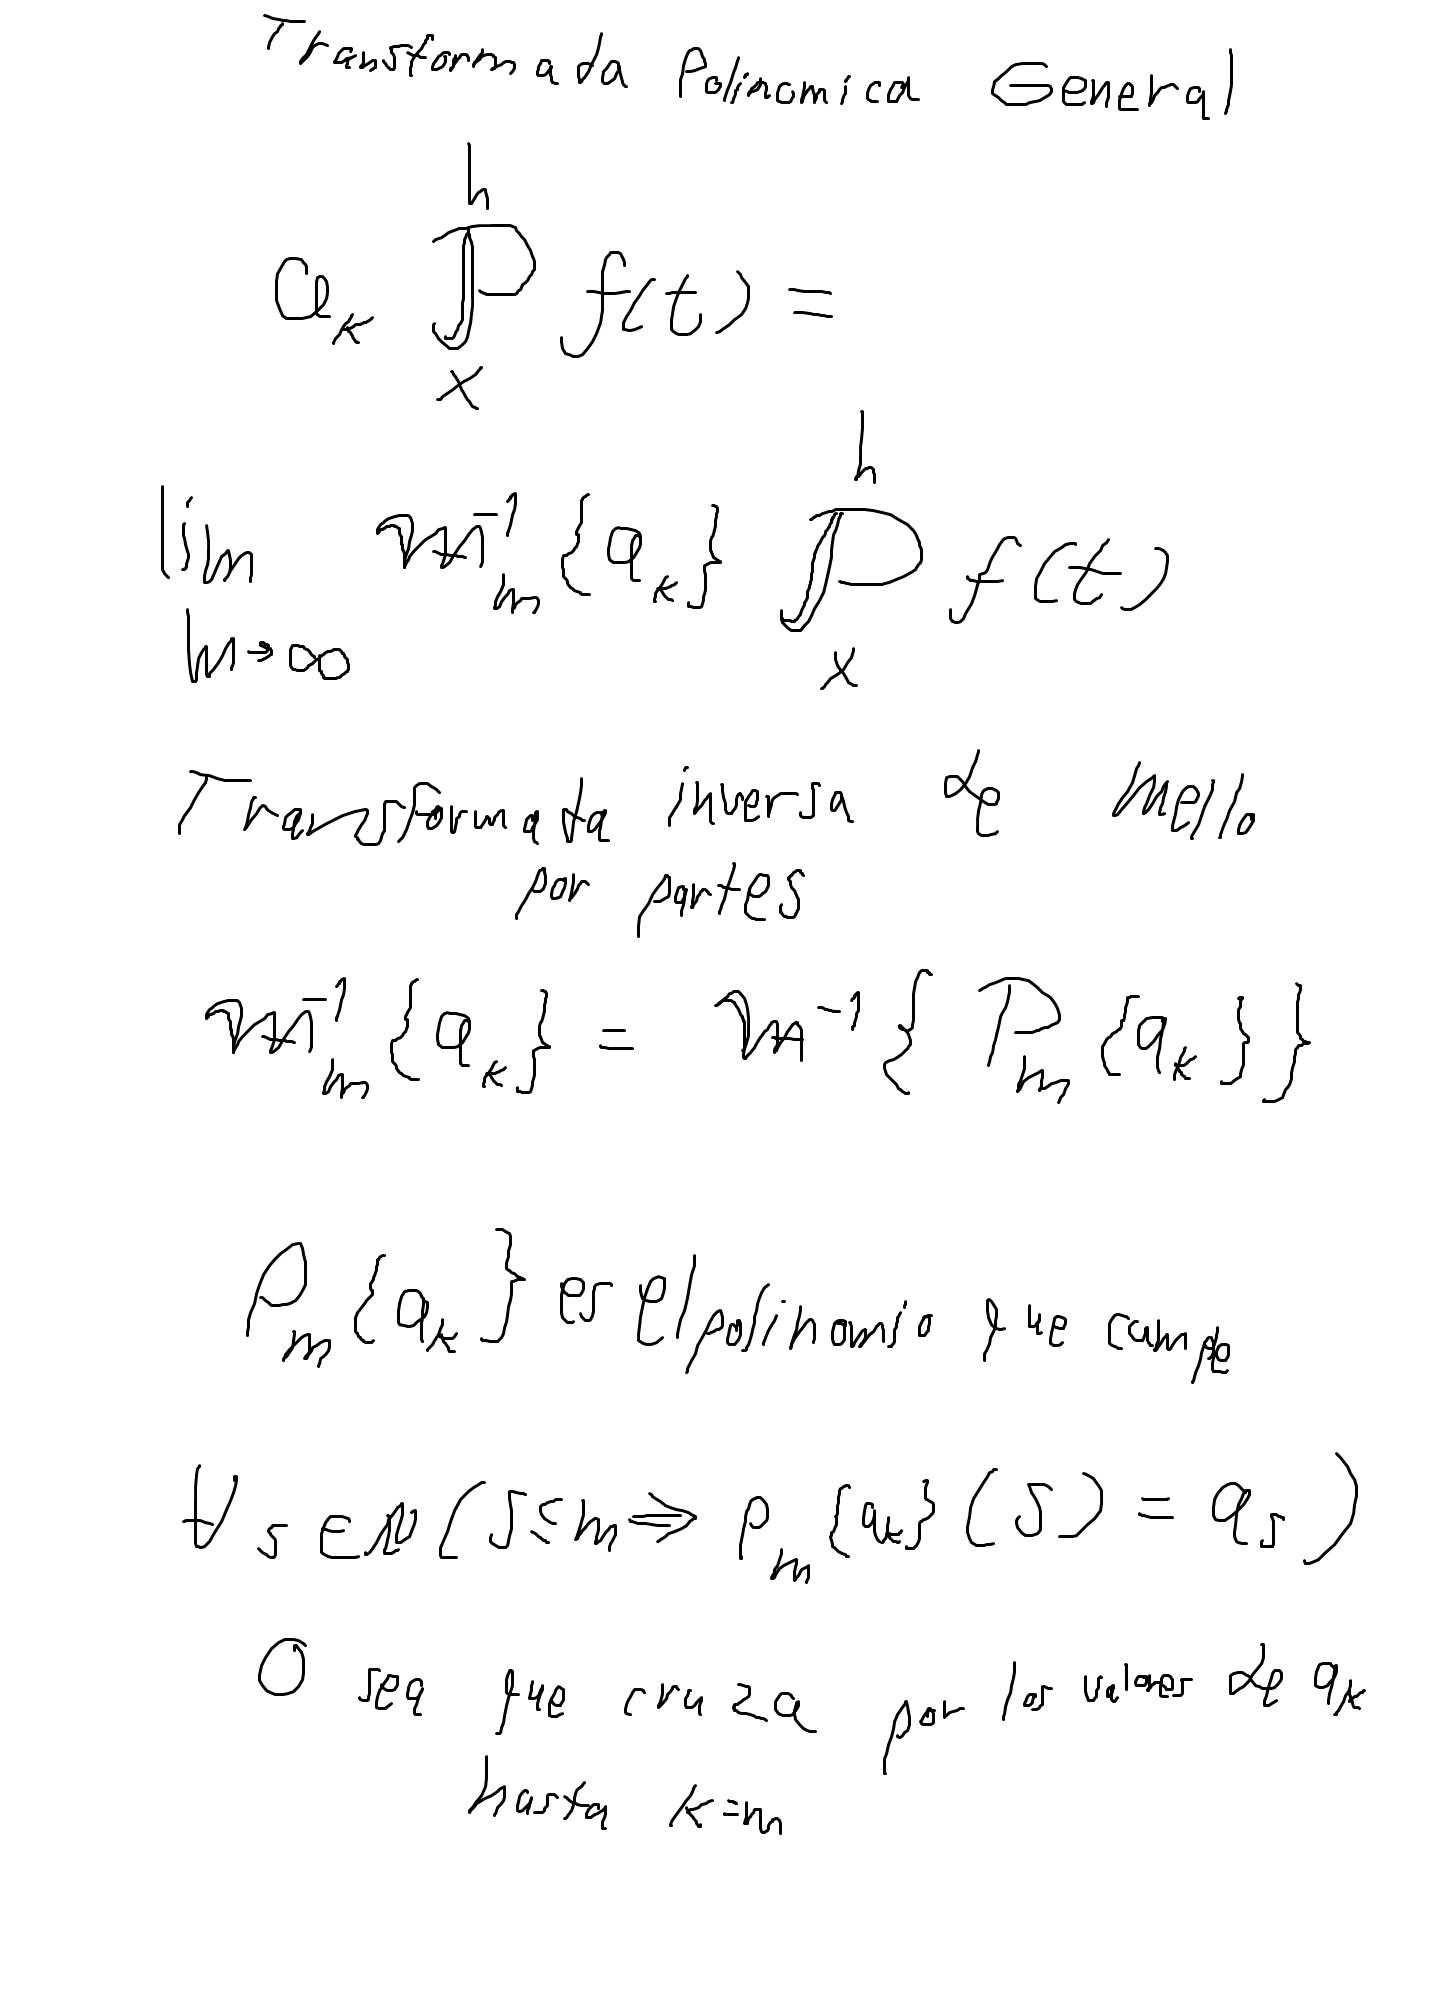 Transformada Polinomica General
h
a_k ℙ f(t) =
x
h
lim 𝔪⁻¹_m {a_k} ℙ f(t)
m→∞ x
Transformada inversa de mello
por partes
𝔪⁻¹_m {a_k} = 𝔪⁻¹ { P_m {a_k} }
P_m {a_k} es el polinomio que cumple
∀ s ∈ ℕ ( s ≤ m ⇒ P_m {a_k} (s) = a_s )
O sea que cruza por los valores de a_k
hasta k=m